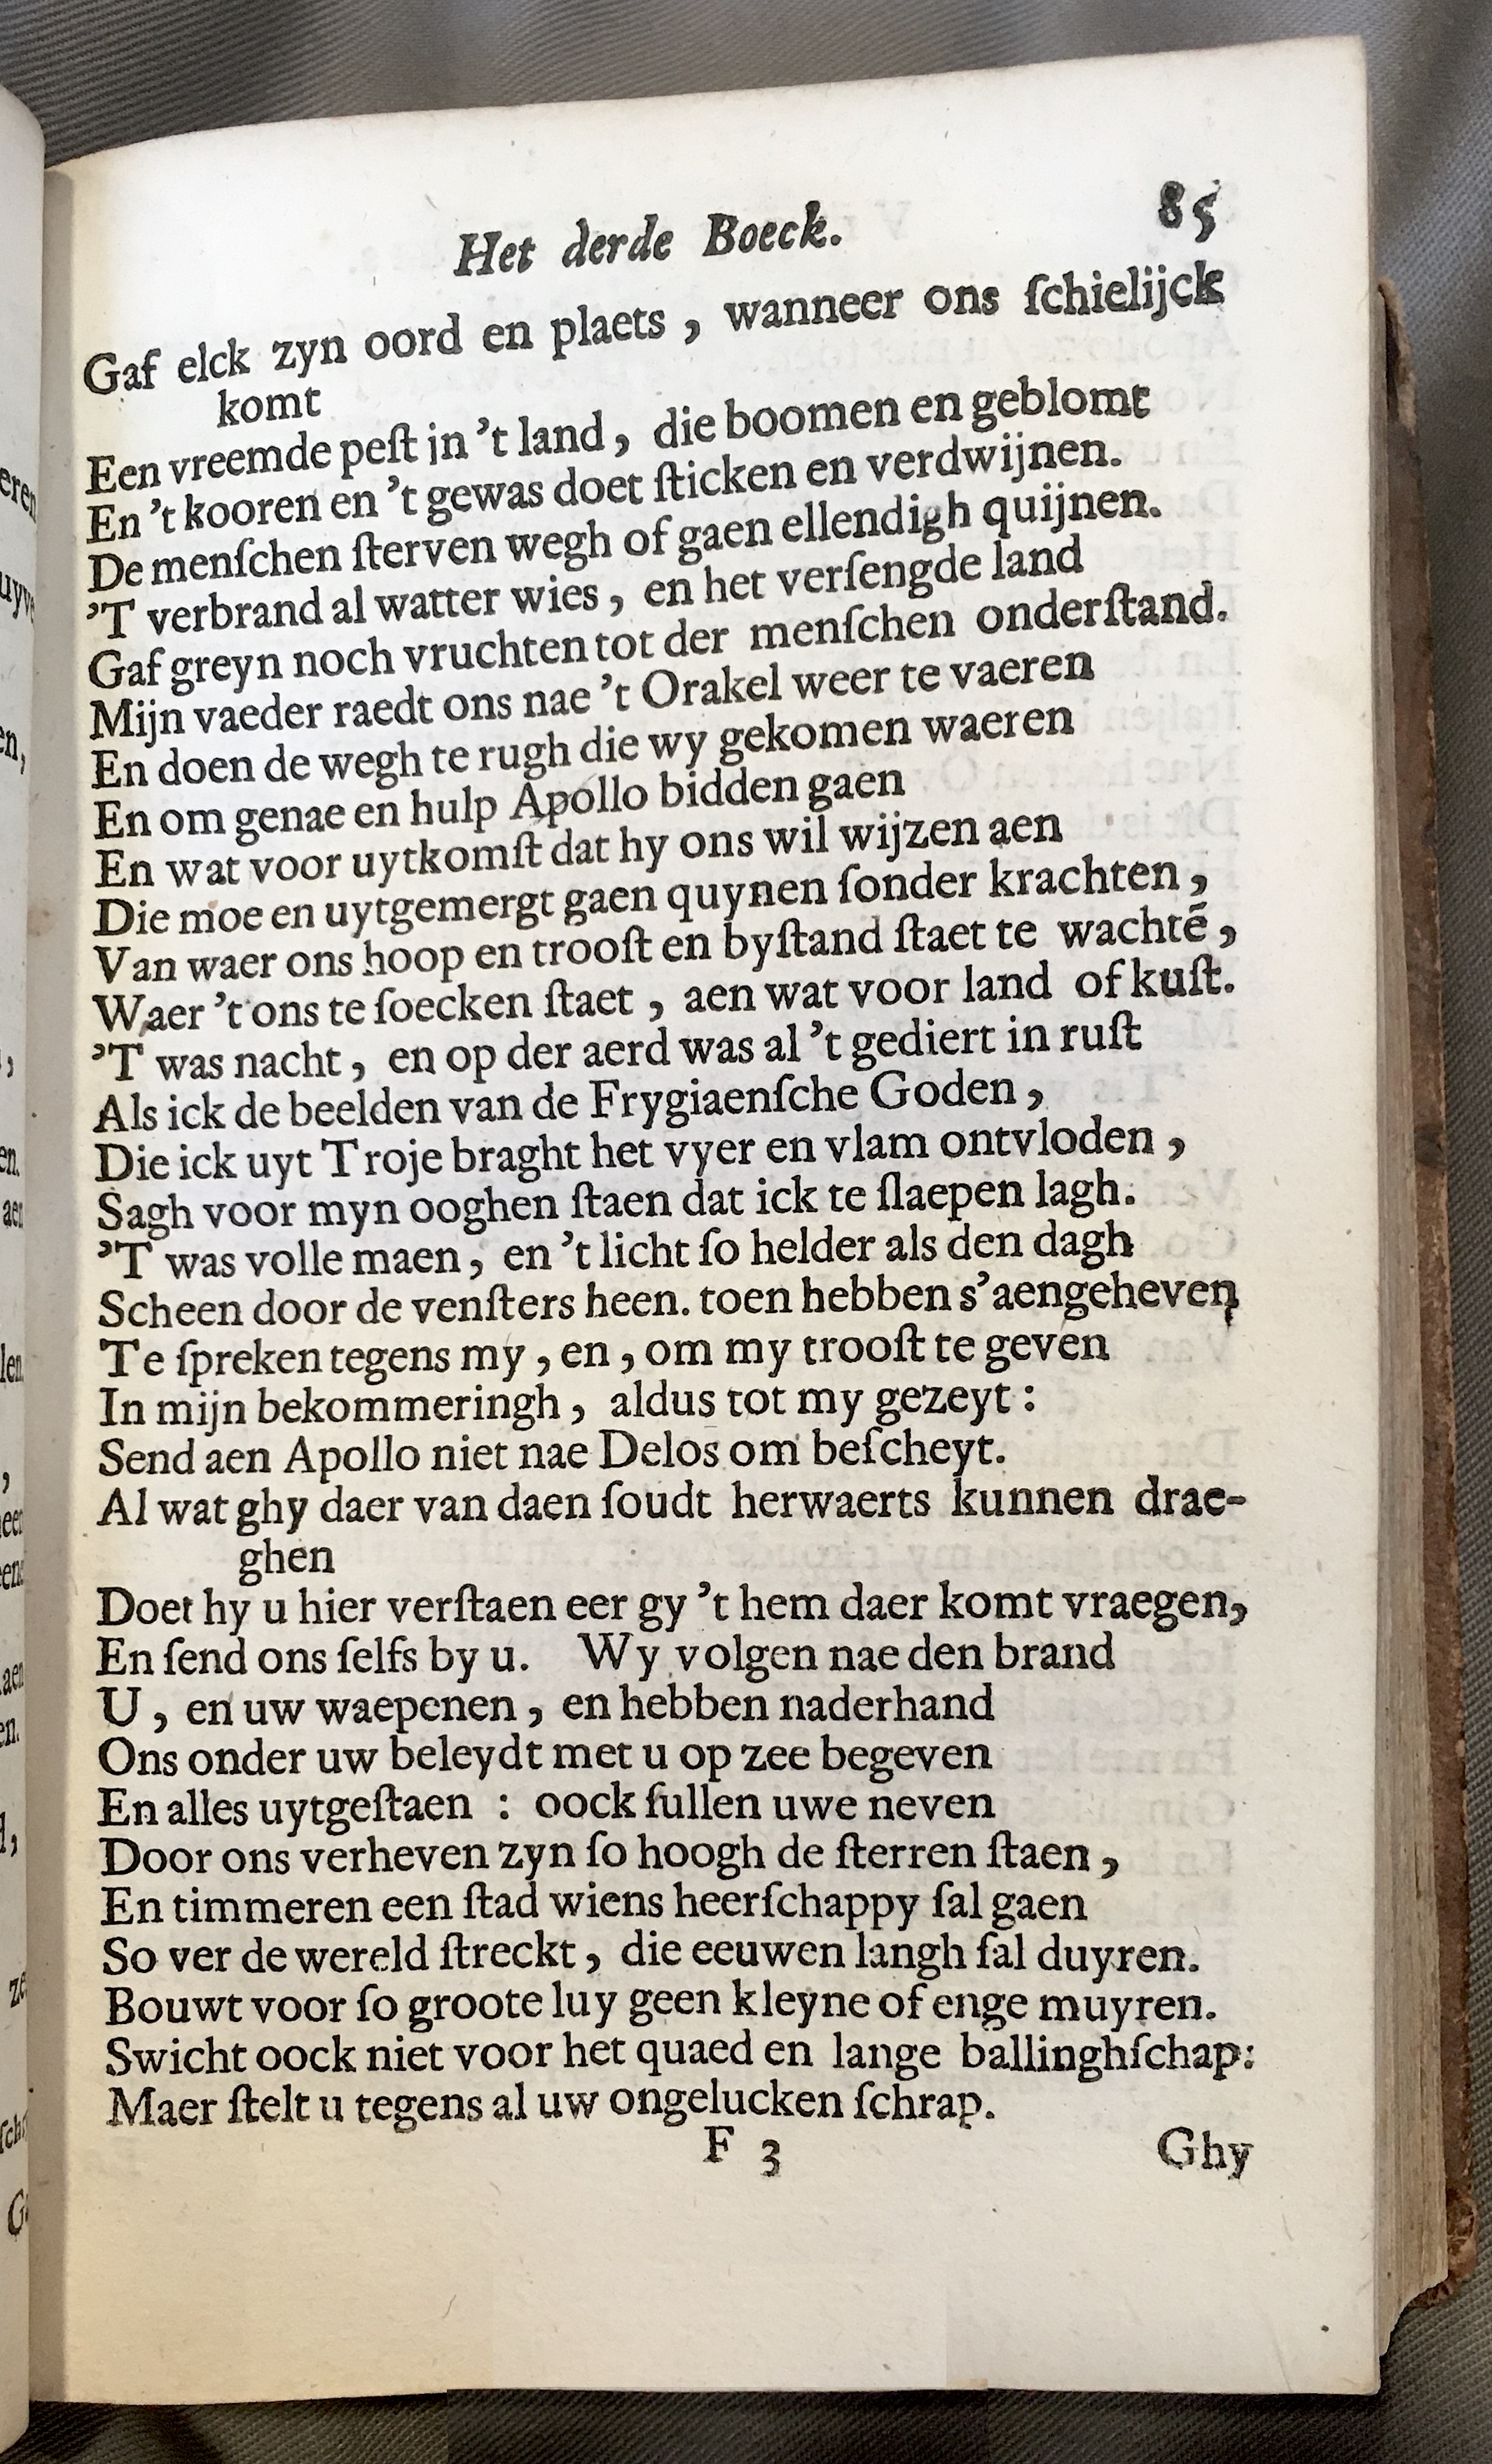 Het derde Boeck. 85
Gaf elck zyn oord en plaets, wanneer ons ſchielijck
komt
Een vreemde peſt in 't land, die boomen en geblomt
En 't kooren en 't gewas doet ſticken en verdwijnen.
De menſchen ſterven wegh of gaen ellendigh quijnen.
'T verbrand al watter wies, en het verſengde land
Gaf greyn noch vruchten tot der menſchen onderſtand.
Mijn vaeder raedt ons nae 't Orakel weer te vaeren
En doen de wegh te rugh die wy gekomen waeren
En om genae en hulp Apollo bidden gaen
En wat voor uytkomſt dat hy ons wil wijzen aen
Die moe en uytgemergt gaen quynen ſonder krachten,
Van waer ons hoop en trooſt en byſtand ſtaet te wachtē,
Waer 't ons te ſoecken ſtaet, aen wat voor land of kuſt.
'T was nacht, en op der aerd was al 't gediert in ruſt
Als ick de beelden van de Frygiaenſche Goden,
Die ick uyt Troje braght het vyer en vlam ontvloden,
Sagh voor myn ooghen ſtaen dat ick te ſlaepen lagh.
'T was volle maen, en 't licht ſo helder als den dagh
Scheen door de venſters heen. toen hebben s'aengeheven
Te ſpreken tegens my, en, om my trooſt te geven
In mijn bekommeringh, aldus tot my gezeyt:
Send aen Apollo niet nae Delos om beſcheyt.
Al wat ghy daer van daen ſoudt herwaerts kunnen drae-
ghen
Doet hy u hier verſtaen eer gy 't hem daer komt vraegen,
En ſend ons ſelfs by u. Wy volgen nae den brand
U, en uw waepenen, en hebben naderhand
Ons onder uw beleydt met u op zee begeven
En alles uytgeſtaen : oock ſullen uwe neven
Door ons verheven zyn ſo hoogh de ſterren ſtaen,
En timmeren een ſtad wiens heerſchappy ſal gaen
So ver de wereld ſtreckt, die eeuwen langh ſal duyren.
Bouwt voor ſo groote luy geen kleyne of enge muyren.
Swicht oock niet voor het quaed en lange ballinghſchap:
Maer ſtelt u tegens al uw ongelucken ſchrap.
F 3 Ghy